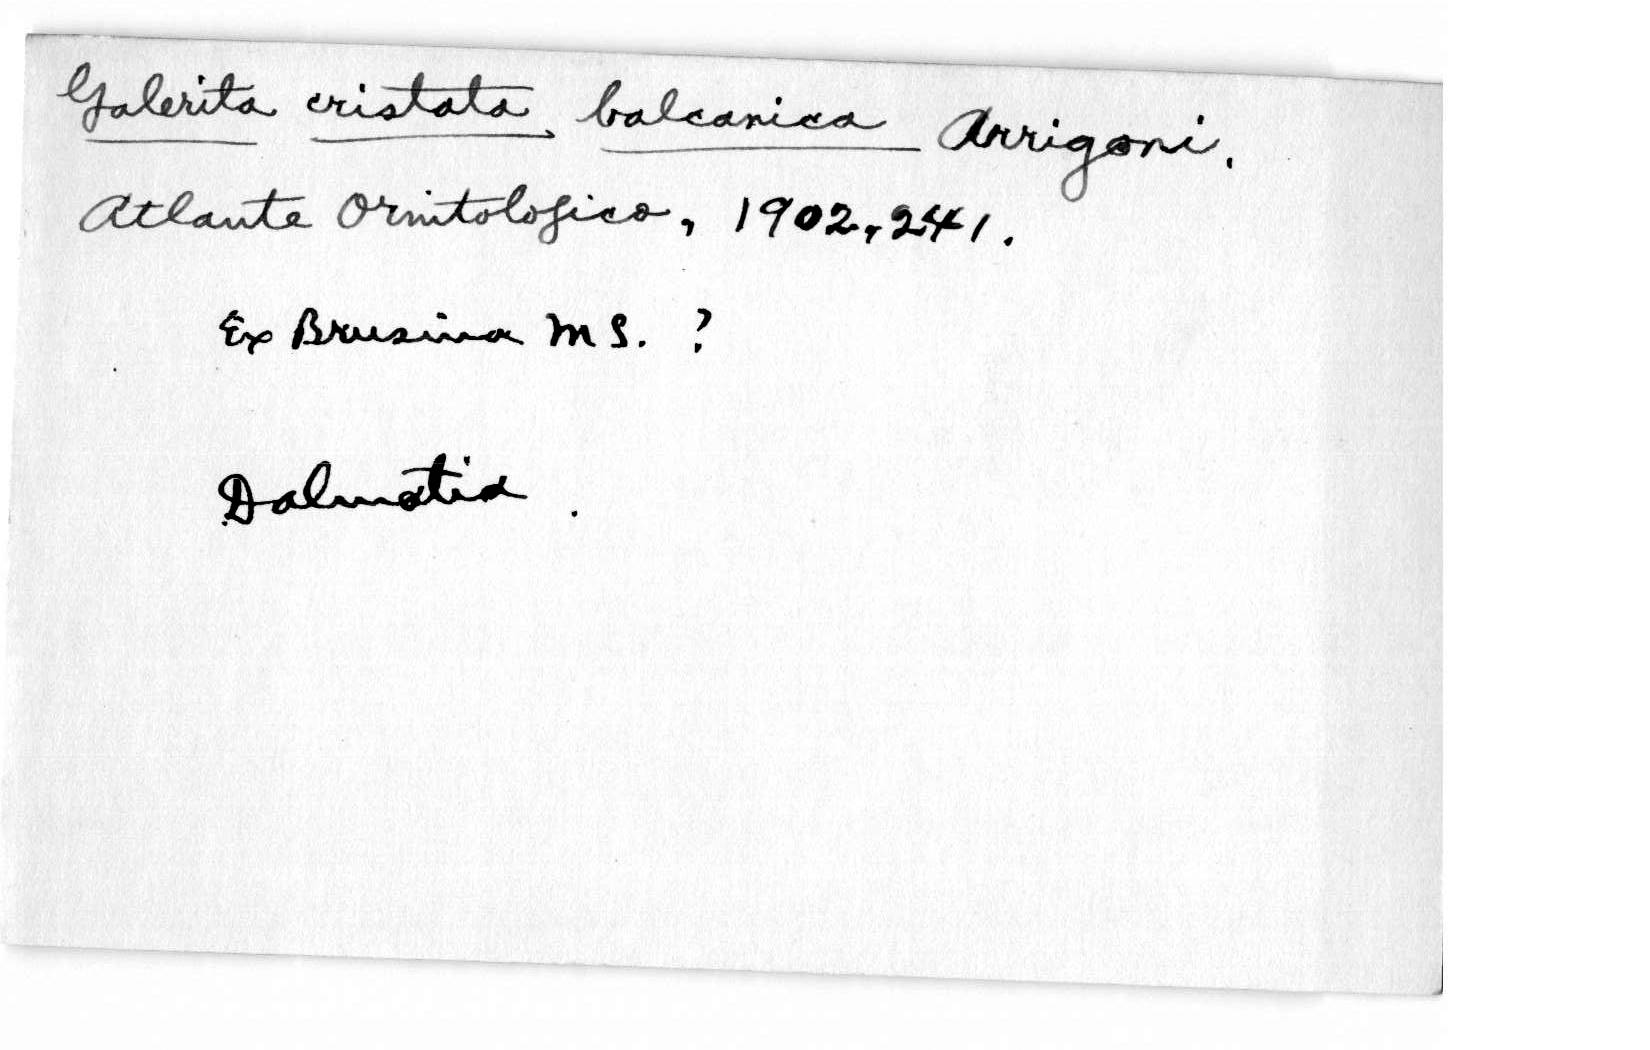 Galerita cristata balcanica Arrigoni.
Atlante Ornitologico, 1902, 241.
Ex Brusina MS. ?
Dalmatia.